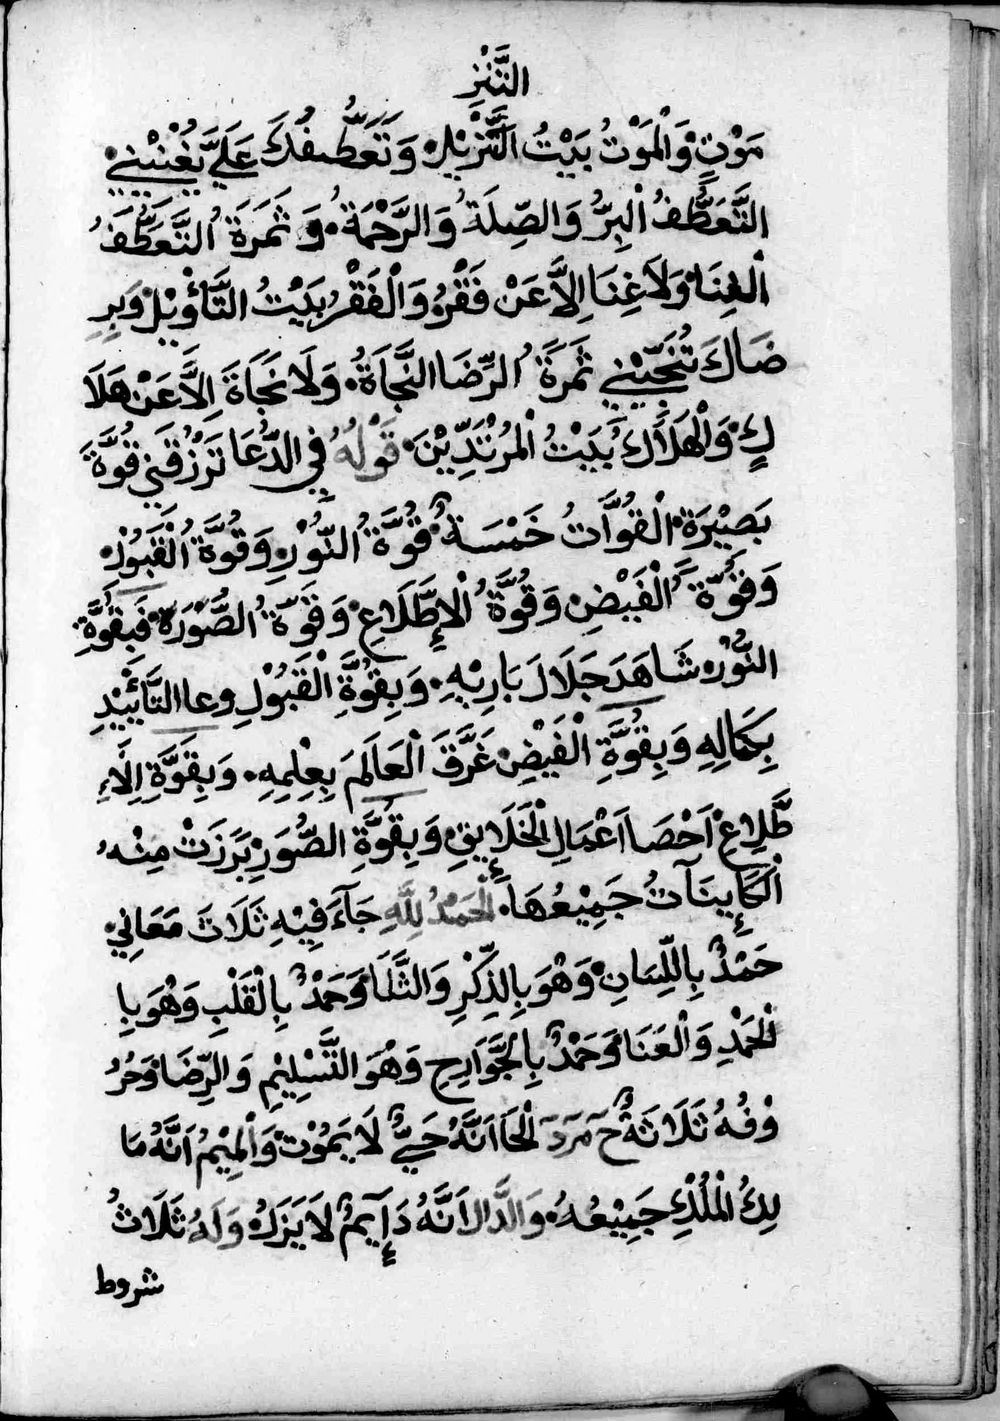 التَّنْز
مَوْتٍ وَالْمَوْتُ بَيْتُ التَّنْزِيْلِ وَتَعَطُّفُكَ عَلَيَّ يُغْنِيْنِي
التَّعَطُّفُ الْبِرُّ وَالصِّلَةُ وَالرَّحْمَةُ وَثَمَرَةُ التَّعَطُّفُ
الغِنَا وَلَا غِنَا اِلاَّ عَنْ فَقْرٍ وَالْفَقْرُ بَيْتُ التَّأْوِيْلِ وَبِرِ
ضَاكَ تُنَجِّيْنِي ثَمَرَةُ الرِّضَا النَّجَاةُ وَلَا نَجَاةَ اِلاَّ عَنْ هَلَا
كٍ وَالْهَلَاكُ بَيْتُ الْمُرْتَدِّيْنَ قَوْلُهُ فِي الدُّعَا تَرْزُقَنِي قُوَّةَ
بَصِيْرَةِ الْقُوَّاتُ خَمْسَةٌ قُوَّةُ النُّوْرِ وَقُوَّةُ الْقَبُوْلِ
وَقُوَّةُ الْفَيْضِ وَقُوَّةُ الْاِطِّلَاعِ وَقُوَّةُ الصُّوْرَةِ فَبِقُوَّةِ
النُّوْرِ شَاهَدَ جَلَالَ بَارِيْهِ وَبِقُوَّةِ الْقَبُوْلِ وعا التَّأَيِيْدِ
بِكَمَالِهِ وَبِقُوَّةِ الْفَيْضِ غَرَّقَ الْعَالَمَ بِعِلْمِهِ وَبِقُوَّةِ اِلَا
طَّلِاعِ اَحْصَا اَعْمَالِ الْخَلَايِقِ وَبِقُوَّةِ الصُّوَرِ بَرَزَتْ مِنْهُ
الْكَايِنَآتُ جَمِيْعُهَا الْحَمْدُ لِلَّهِ جَآءَ فِيْهِ ثَلَاثَ مَعَانِي
حَمْدٌ بِاللِّسَانِ وَهُوَ بِالذِّكْرِ وَالثَّنَا وَحَمْدٌ بِالْقَلْبِ وَهُوَ بِا
لْحَمْدِ وَالْعَنَا وَحَمْدٌ بِالْجَّوَارِحِ وَهُوَ التَّسْلِيْمِ وَالرِّضَا وَحُرُ
وْفُهُ ثَلَاثَةٌ حَ مَ دَ الْحَا اَنَّهُ حَيٌّ لَا يَمُوْتُ وَالْمِيْمُ اَنَّهُ مَا
لِكُ الْمُلْكِ جَمِيْعُهُ وَالدَّالُ اَنَّهُ دَآيِمٌ لَا يَزَلْ وَلَهُ ثَلَاثُ
شروط